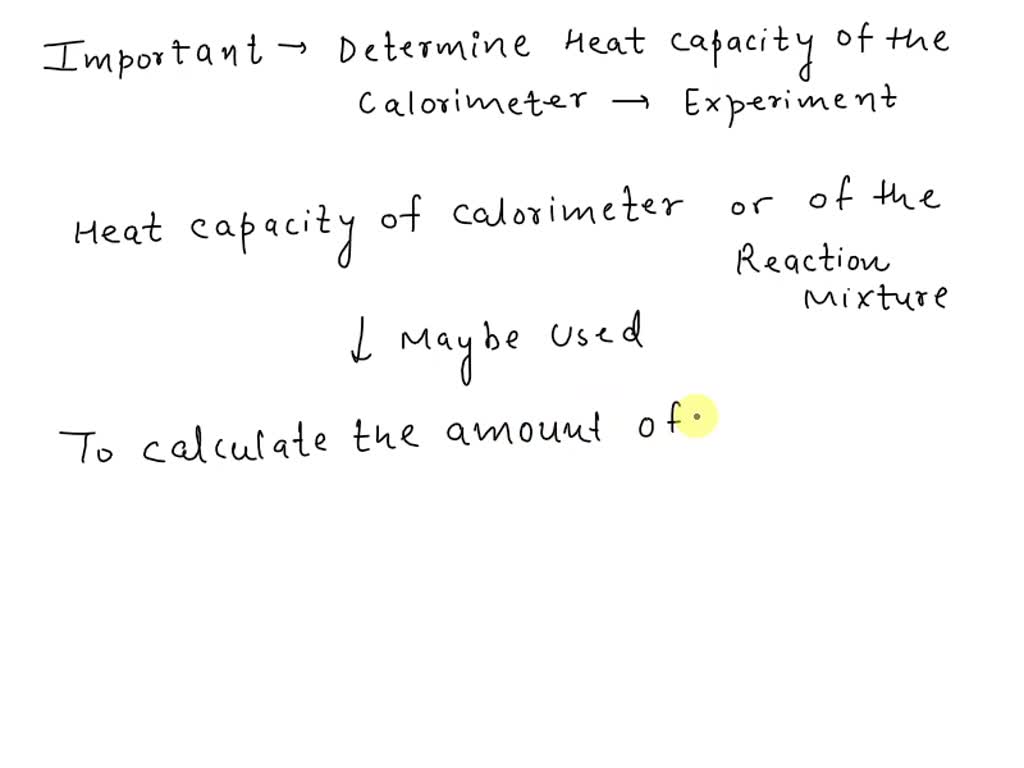 Important → Determine Heat capacity of the
Calorimeter → Experiment
Heat capacity of calorimeter or of the
Reaction
Mixture
↓ Maybe Used
To calculate the amount of